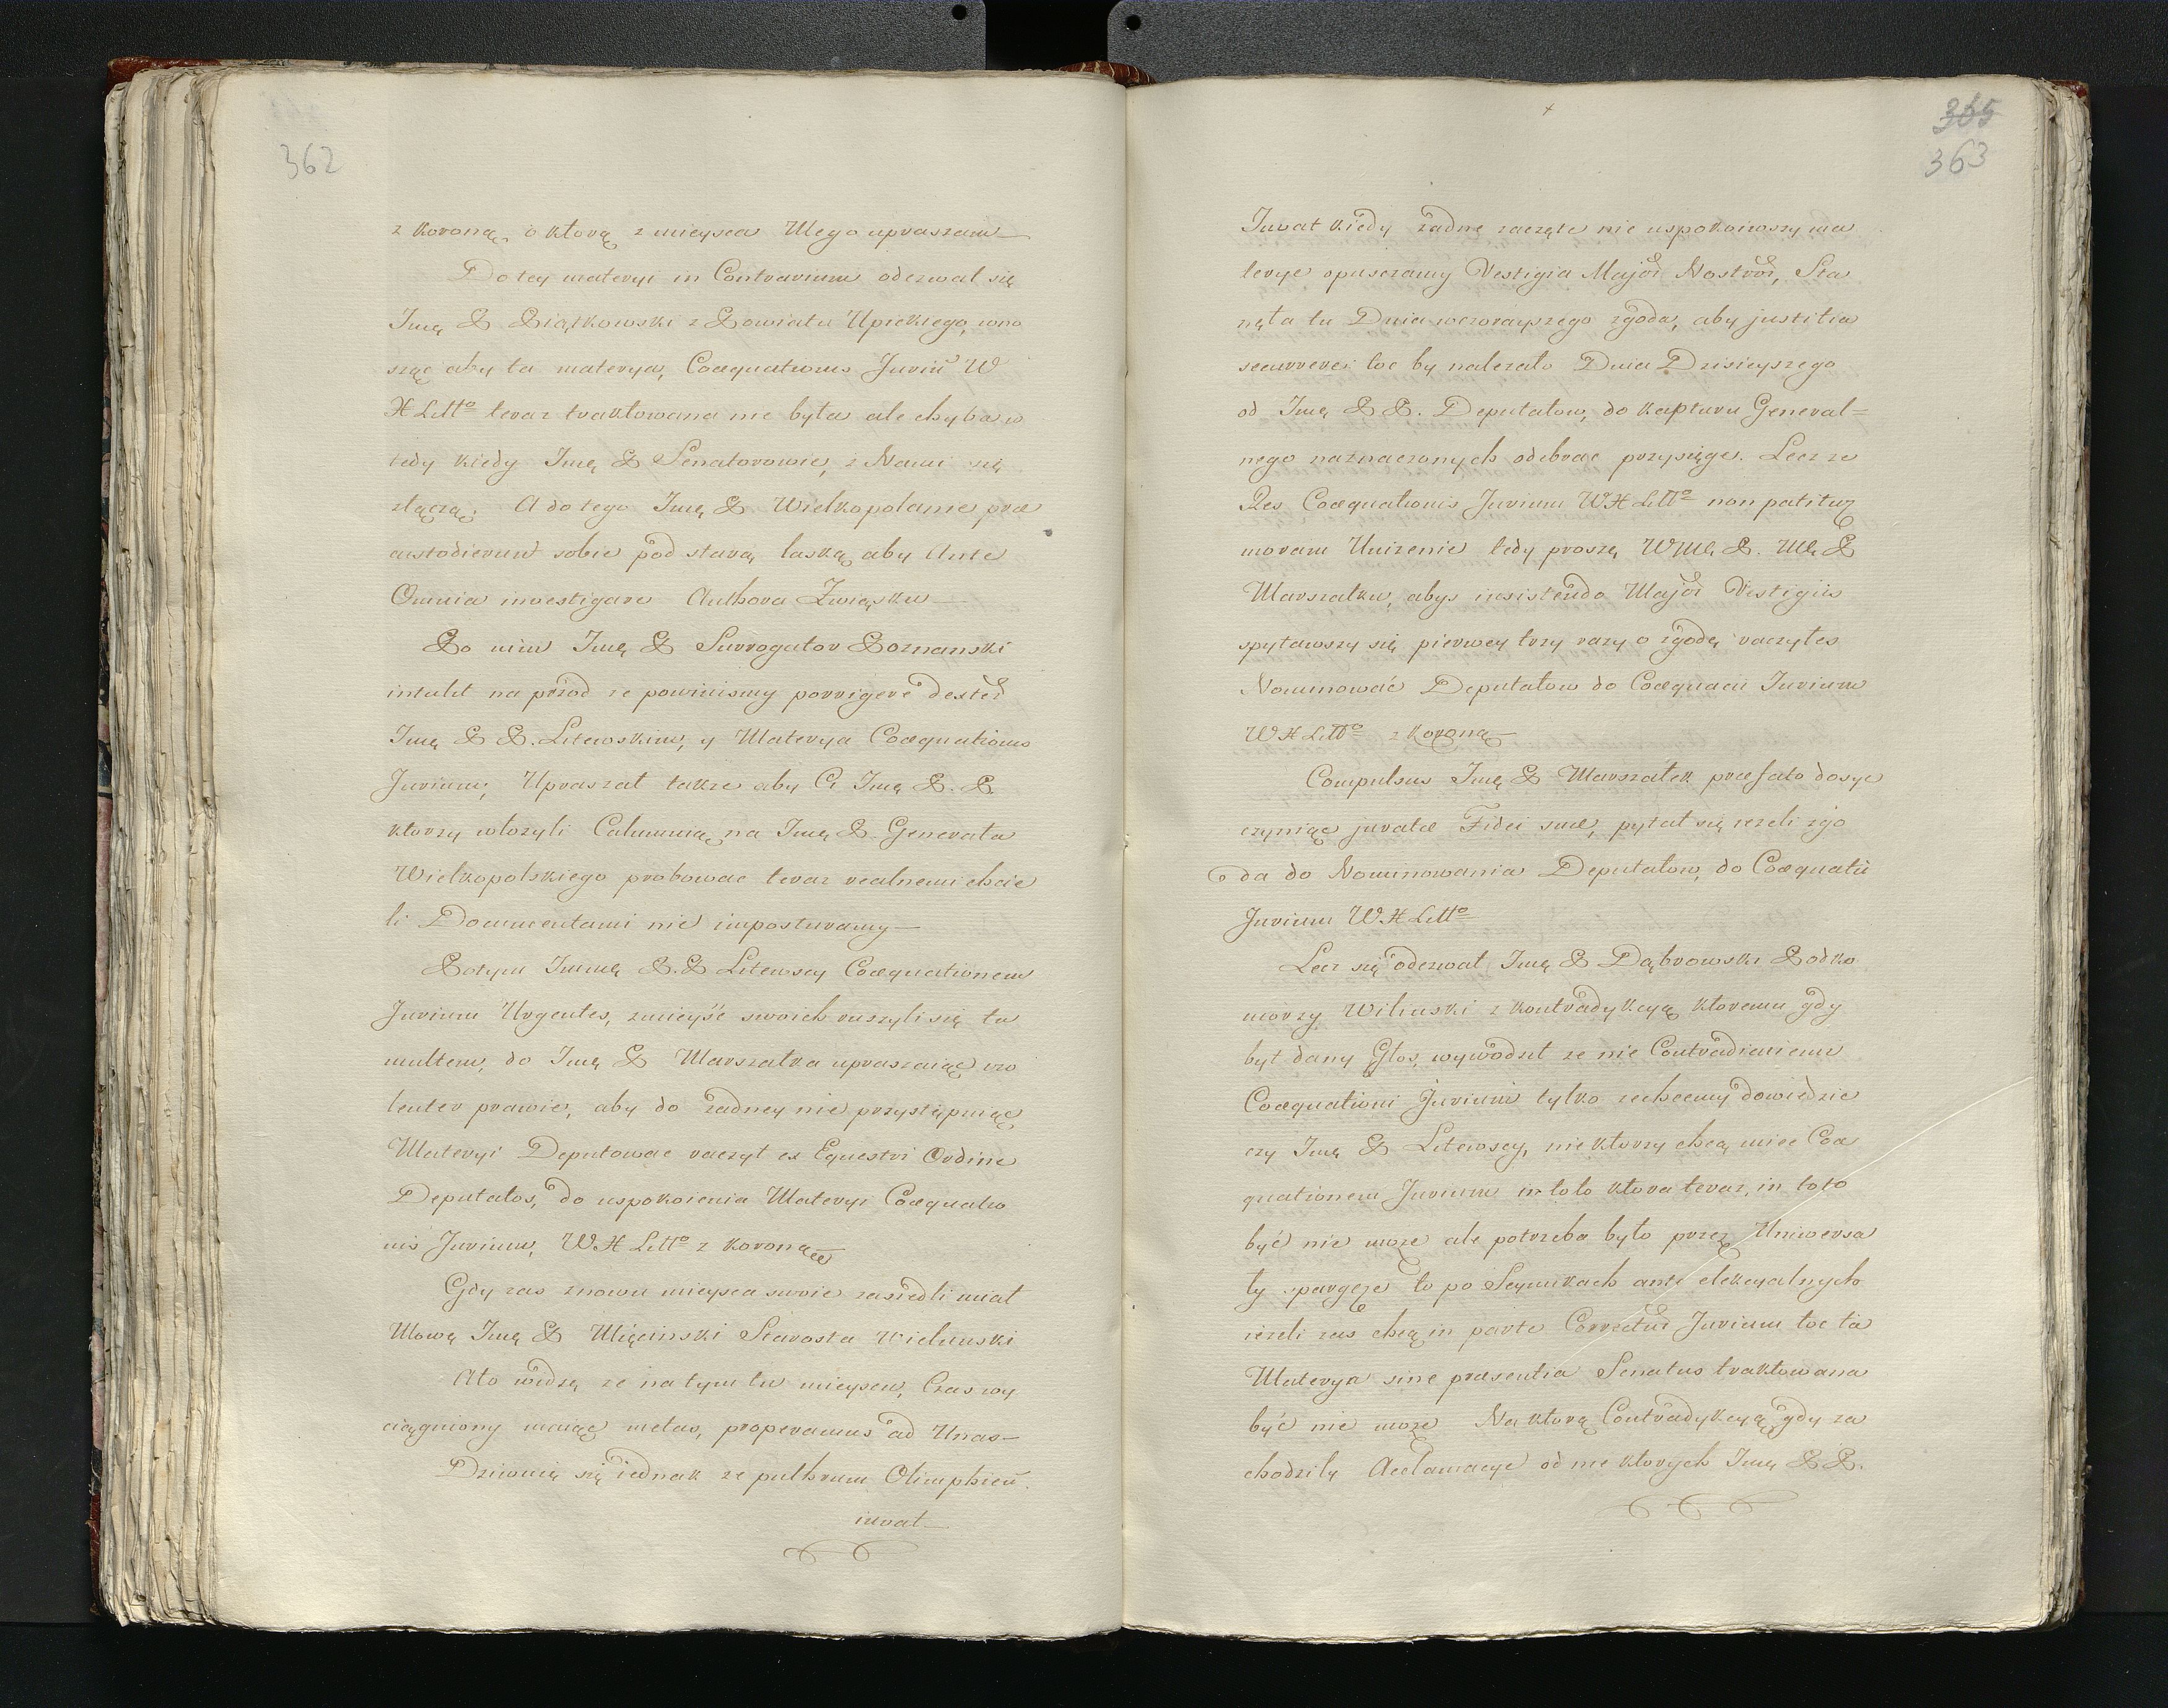 362
z Koroną, o ktorą z mieysca Mego upraszam
Do tey materyi in Contrarium odezwal się
Imę P Piątkowski z Powiatu Upickiego, wno
sząc aby ta materya, Coæquationis Juriu W
X Litto teraz traktowana nie byla ale chyba w
tedy kiedy Imę P Senatorowie, z Nami się
złączą. A do tego Imę P Wielkopolanie præ
custodierunt sobie pod starą laską, aby Ante
Omnia investigare Authora Związku
Po nim Imę P Surrogator Poznanski
intulit na przod ze powinismy porrigere dexter
Imę P P. Litewskim, y Materya Coæquationis
Jurium, Upraszał takze aby Ci Imę P. P.
ktorzy włozyli Calumnią na Imę P. Generała
Wielkopolskiego probowac teraz realnemi chcie
li Documentami nie imposturamy
Potym Immę P. P Litewscy Coæquationem
Jurium Urgentes, z mieysc swoich ruszyli się tu
multem, do Imę P Marszałka upraszaiąc vio
lenter prawie, aby do zadney nie przystępuiąc
Materyi Deputowac raczył ex Equestri Ordine
Deputatos, do uspokoienia Materyi Coæquatio
nis Jurium, W X Litto z Koroną
Gdy zas znowu mieysca swoie zasiedli miał
Mowę Imę P Męcinski Starosta Wielunski
Ato widzę ze na tym tu mieyscu, Czas wy
ciągniony maiąc metas, properamus ad Unas
Dziwuię się iednak ze pulhrum Olimphicu
iuvat
365
363
Juvat kiedy zadne zaczęte nie uspokoiwszy ma
terye opuszczamy Vestigia Major Nostror, Sta
nęła tu Dnia wczorayszego zgoda, aby justitia
securreret toc by nalezało Dnia Dzisieyszego
od Imę P P. Deputatow, do Kapturu General=
nego naznaczonych odebrac przysięge. Lecz ze
Res Coæquationis Jurium W X Litto non patitur
moram Unizenie tedy proszę W M P. M P
Marszałku, abys insistendo Major Vestigiis
spytawszy się pierwey trzy razy o zgodę raczyłes
Nominować Deputatow do Coæquacii Jurium
W X Litto z Koroną
Compulsus Imę P Marszałek præfato dosyc
czyniąc juratæ Fidei suæ, pytał się iezeli zgo
da do Nominowania Deputatow, do Coæquatii
Jurium W. X Litto
Lecz się odezwał Imę P Dąbrowski Podko
morzy Wilinski z kontradykcyą, ktoremu gdy
był dany Głos, wywodził ze nie Contradicimus
Coæquationi Jurium tylko zechcemy dowiedzie
czy Imę P Litewscy, nie ktorzy chcą miec Coæ
quationem Jurium in toto ktora teraz, in toto
być nie moze ale potrzeba było przez Uniwersa
ły spargere to po Seymikach ante elekcyalnych
iezeli zas chcą in parte Correctur Jurium toc ta
Materya sine præsentia Senatus traktowana
być nie moze Na ktorą Contradykcyą gdy za
chodziły Acclamacye od nie ktorych Imę P P.